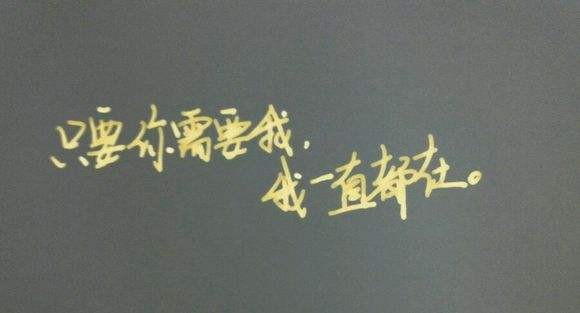 只要你需要我,
我一直都在。